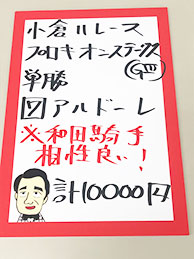 小倉11レース
プロキオンステークス
GⅢ
単勝
⑦アルドーレ
※和田騎手
相性良い！
計10000円